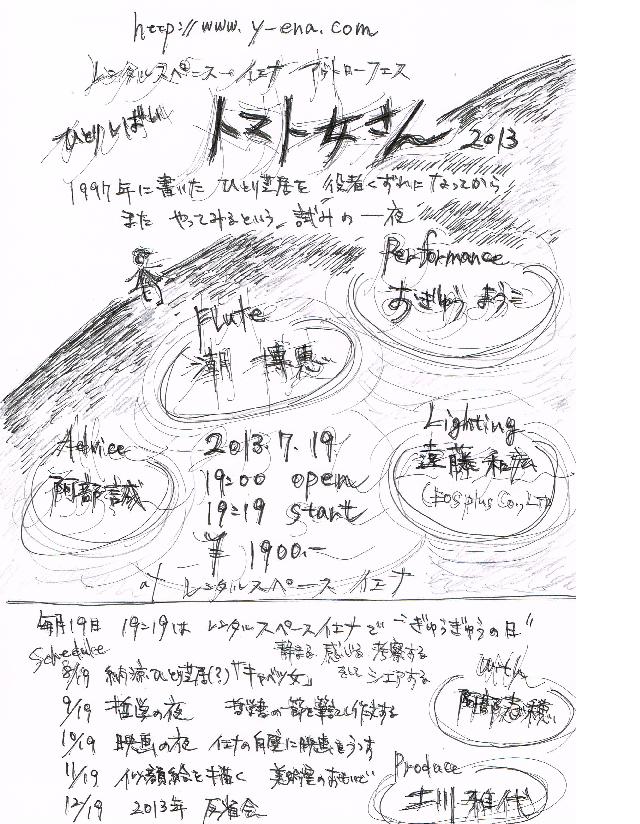 http://www.y-ena.com
レンタルスペース・イエナ アウトローフェス
ひとりしばい トマト女さん 2013
1997年に書いた ひとり芝居を 役者くずれになってから
また やってみるという 試みの一夜
Performance
おぎゅう まう
Flute
潮 博恵
Advice
阿部 誠
2013.7.19
19:00 open
19:19 start
¥ 1900.-
Lighting
遠藤和宏
plus Co., LTD
at レンタルスペース イエナ
毎月19日 19:19は レンタルスペースイエナで "ぎゅうぎゅうの日"
静まる 感じる 考察する
そして シェアする
Schedule
8/19 納涼ひとり芝居(?)「キャベツ女」
9/19 哲学の夜 哲学書の一節を
10/19 映画の夜 イエナの白壁に映画をうつす
11/19 似顔絵を描く 美術室のおもいで
12/19 2013年 反省会
with
阿部
Produce
土川雅代